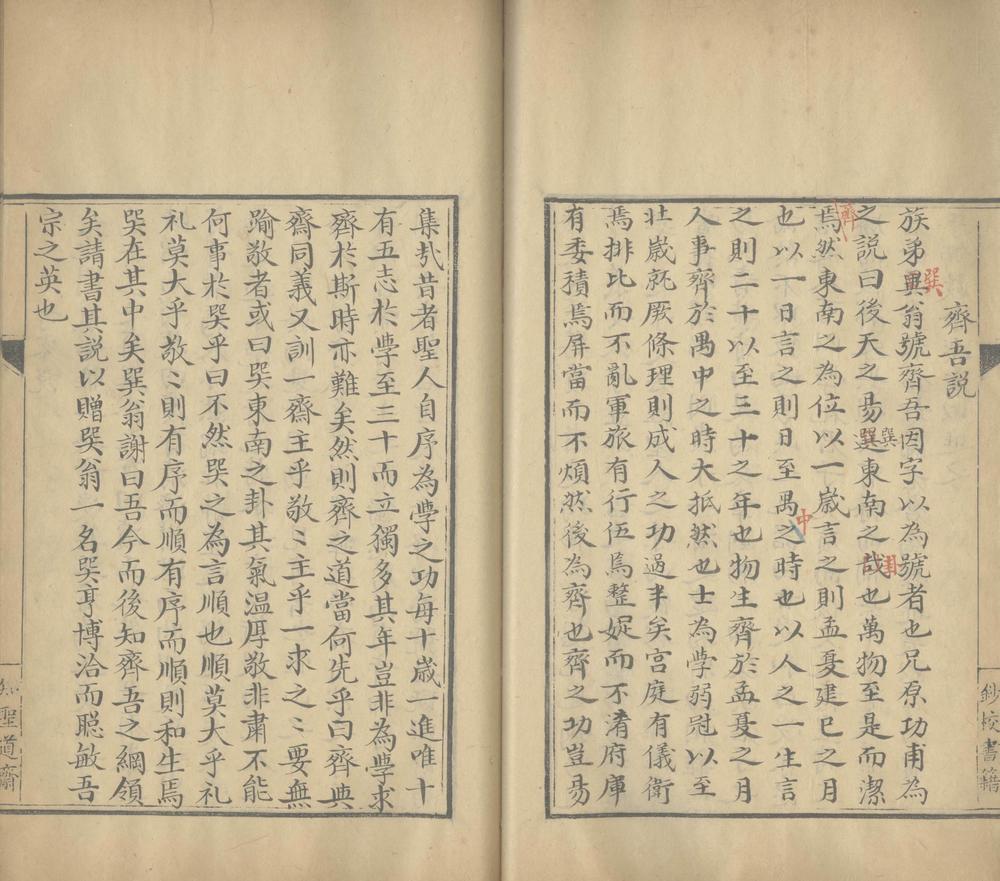 齊吾説
族弟㢲翁號齊吾因字以為號者也兄原功甫為
巽
之説曰後天之昜選東南之哉也萬物至是而潔
齊
巽
卦
焉然東南之為位以一歲言之則孟夏建巳之月
也以一日言之則日至禺之時也以人之一生言
中
之則二十以至三十之年也物生齊於孟夏之月
人事齊於禺中之時大抵然也士為學弱冠以至
壯歲就厥條理則成人之功過半矣宫庭有儀衛
焉排比而不亂軍旅有行伍焉整娖而不淆府庫
有委積焉屏當而不煩然後為齊也齊之功豈昜
鈔校書籍
集㢤昔者聖人自序為學之功每十歲一進唯十
有五志於學至三十而立獨多其年豈非為學求
齊於斯時亦難矣然則齊之道當何先乎曰齊與
齋同義又訓一齋主乎敬〻主乎一求之〻要無
踰敬者或曰巽東南之卦其氣温厚敬非肅不能
何事於巽乎曰不然巽之為言順也順莫大乎礼
礼莫大乎敬〻則有序而順有序而順則和生焉
巽在其中矣巽翁謝曰吾今而後知齊吾之綱領
矣請書其説以贈巽翁一名巽亨博洽而聪敏吾
宗之英也
知聖道齋